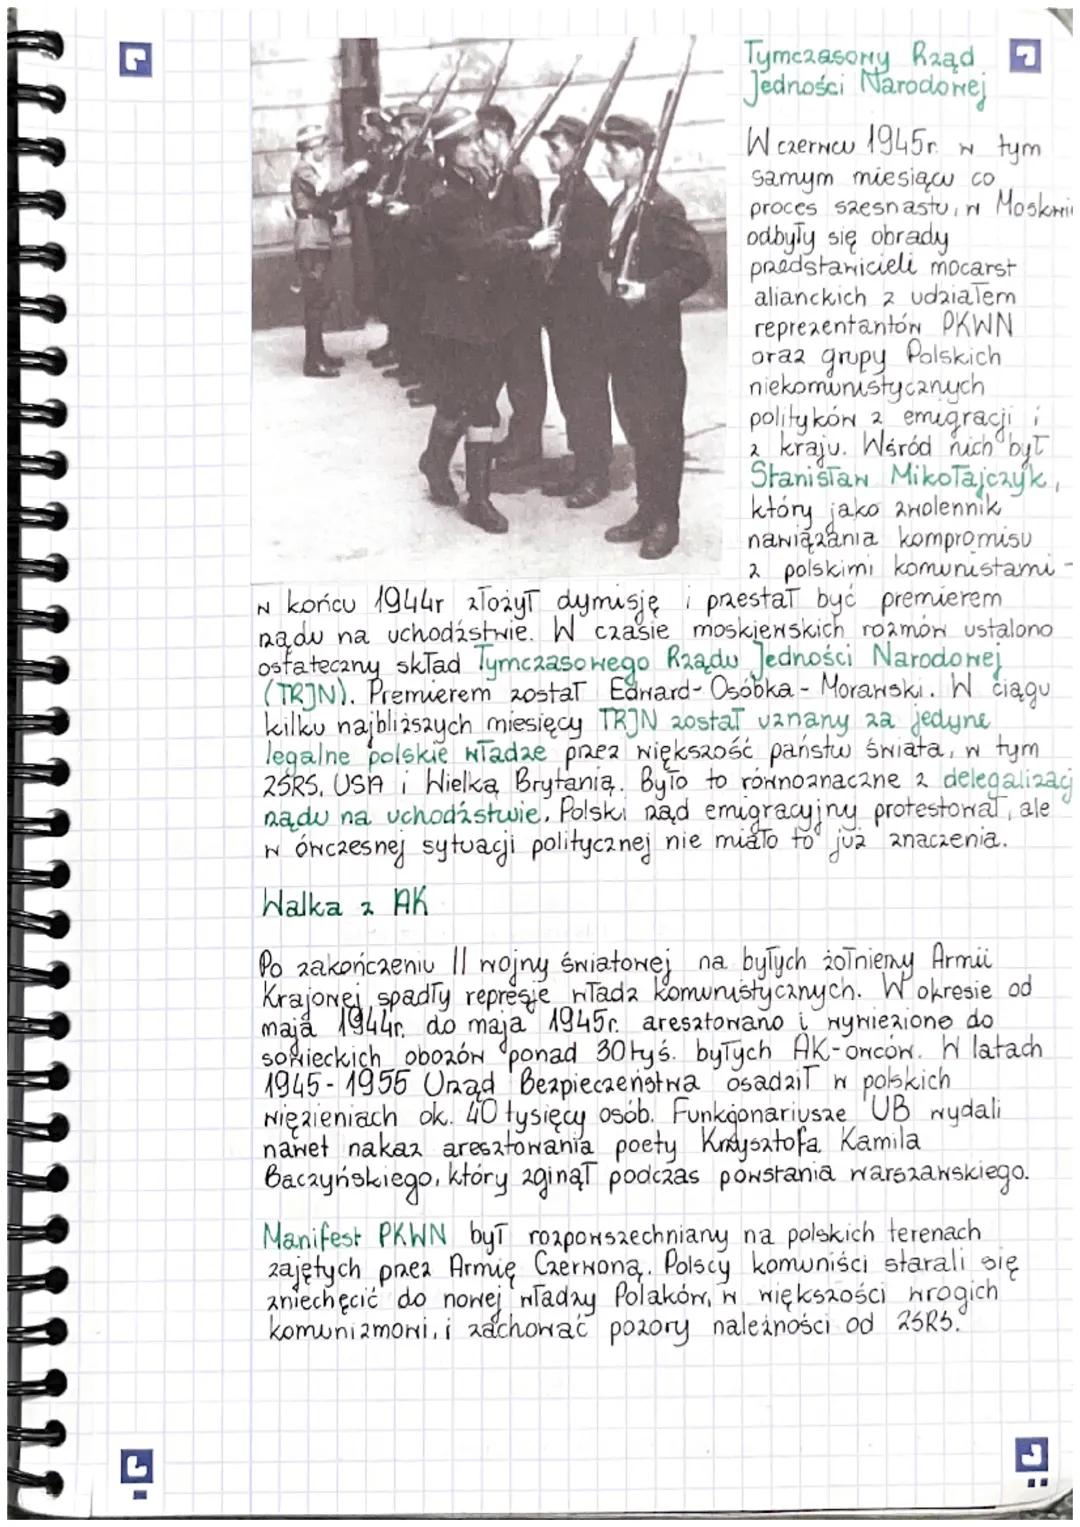 Tymczasowy Rząd
Jedności Narodowej
W czerwcu 1945r. w tym
samym miesiącu co
proces szesnastu, w Moskwi
odbyły się obrady
przedstawicieli mocarst
alianckich z udziałem
reprezentantów PKWN
oraz grupy Polskich
niekomunistycznych
polityków z emigracji i
z kraju. Wśród nich był
Stanisław Mikołajczyk,
który jako zwolennik
nawiązania kompromisu
z polskimi komunistami -
w końcu 1944r złożył dymisję i przestał być premierem
rządu na uchodźstwie. W czasie moskiewskich rozmów ustalono
ostateczny skład Tymczasowego Rządu Jedności Narodowej
(TRJN). Premierem został Edward-Osóbka-Morawski. W ciągu
kilku najbliższych miesięcy TRJN został uznany za jedyne
legalne polskie władze przez większość państw świata, w tym
ZSRS, USA i Wielką Brytanią. Było to równoznaczne z delegalizacj
rządu na uchodźstwie. Polski rząd emigracyjny protestował, ale
w ówczesnej sytuacji politycznej nie miało to już znaczenia.
Walka z AK
Po zakończeniu II wojny światowej na byłych żołnierzy Armii
Krajowej spadły represje władz komunistycznych. W okresie od
maja 1944r. do maja 1945r. aresztowano i wywieziono do
sowieckich obozów ponad 30 tyś. byłych AK-owców. W latach
1945-1956 Urząd Bezpieczeństwa osadził w polskich
więzieniach ok. 40 tysięcy osób. Funkcjonariusze UB wydali
nawet nakaz aresztowania poety Krzysztofa Kamila
Baczyńskiego, który zginął podczas powstania warszawskiego.
Manifest PKWN był rozpowszechniany na polskich terenach
zajętych przez Armię Czerwoną. Polscy komuniści starali się
zniechęcić do nowej władzy Polaków, w większości wrogich
komunizmowi, i zachować pozory należności od ZSRS.